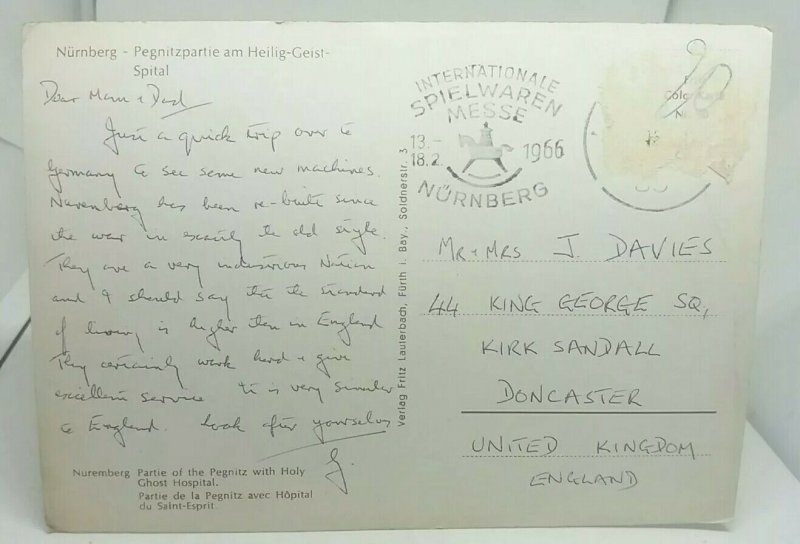 Nürnberg - Pegnitzpartie am Heilig-Geist-
Spital
Dear Mam + Dad
Just a quick trip over to
Germany to see some new machines.
Nuremberg has been re-built since
the war in exactly the old style.
They are a very industrious Nation
and I should say that the standard
of living is higher than in England
They certainly work hard + give
excellent service it is very similar
to England. Look after yourselves
J.
Nuremberg Partie of the Pegnitz with Holy
Ghost Hospital.
Partie de la Pegnitz avec Hôpital
du Saint-Esprit
Verlag Fritz Lauterbach, Fürth i. Bay., Soldnerstr. 3
INTERNATIONALE
SPIELWAREN
MESSE
13.-
18.2. 1966
NÜRNBERG
20
MR + MRS J. DAVIES
44 KING GEORGE SQ,
KIRK SANDALL
DONCASTER
UNITED KINGDOM
ENGLAND